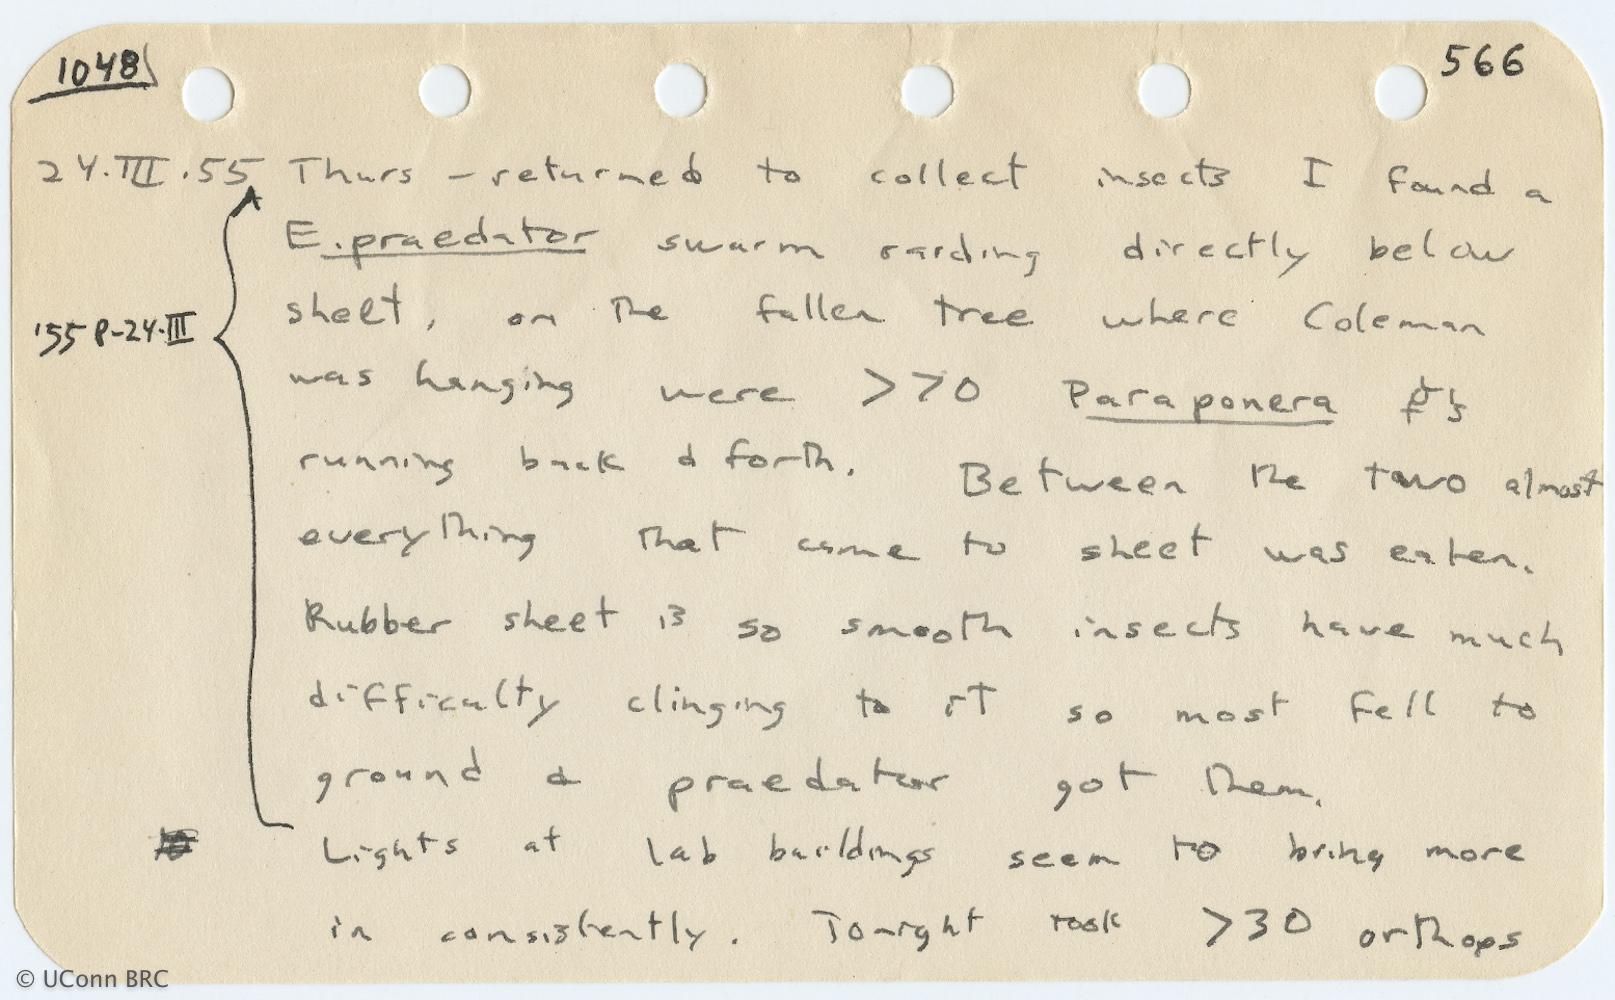 1048
566
24.III.55 Thurs – returned to collect insects I found a
E. praedator swarm raiding directly below
sheet, on the fallen tree where Coleman
was hanging were >70 Paraponera
running back & forth. Between the two almost
everything that came to sheet was eaten.
'55 P-24-III
Rubber sheet is so smooth insects have much
difficulty clinging to it so most fell to
ground & praedator got them.
Lights at lab buildings seem to bring more
in consistently. Tonight took >30 orthops
© UConn BRC